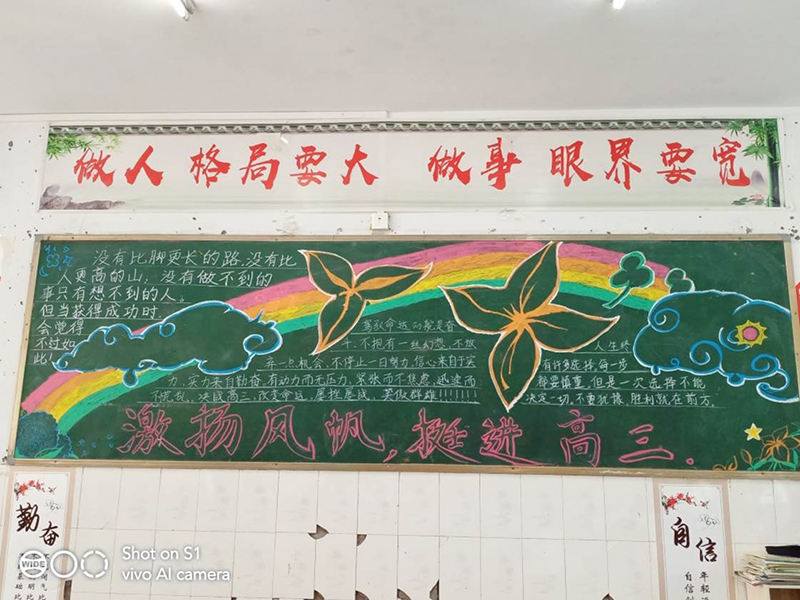 做人 格局要大 做事 眼界要宽
没有比脚更长的路,没有比
人更高的山,没有做不到的
事只有想不到的人。
但当获得成功时,
会觉得
不过如
此!
驾驭命运的舵是奋
斗,不抱有一丝幻想,不放
弃一点机会,不停止一日努力,信心来自于实
力,实力来自勤奋,有动力而无压力,紧张而不焦虑,迅速而
不慌乱,决战高三,改变命运,屡挫屡战,笑傲群雄!!!!!!!
人生终
有许多选择,每一步
都要慎重,但是一次选择不能
决定一切,不要犹豫,胜利就在前方。
激扬风帆,挺进高三.
勤奋
自信
年轻
自信
WIDE
Shot on S1
vivo AI camera